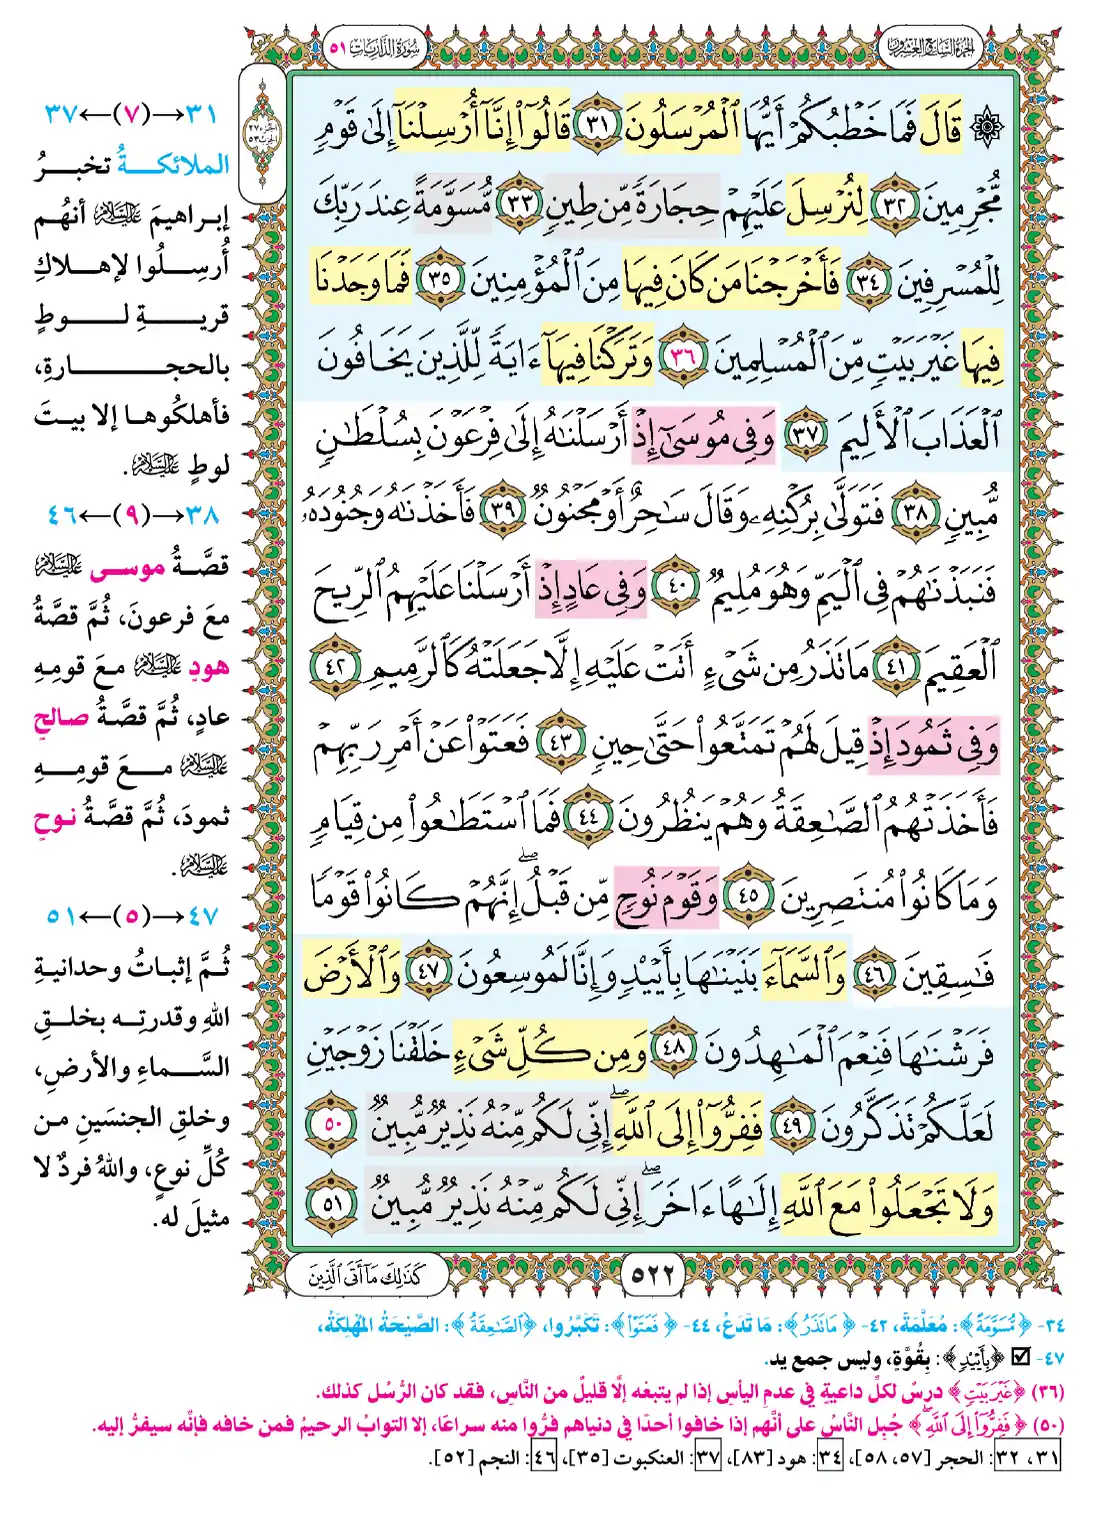 سُورَةُ الذَّارِيَات ٥١
الجُزءُ السَّابِعُ وَالعِشْرُونَ
الجُزء ٢٧
الحِزب ٥٣
۞ قَالَ فَمَا خَطْبُكُمْ أَيُّهَا ٱلْمُرْسَلُونَ ٣١ قَالُوٓا۟ إِنَّآ أُرْسِلْنَآ إِلَىٰ قَوْمٍ
مُّجْرِمِينَ ٣٢ لِنُرْسِلَ عَلَيْهِمْ حِجَارَةً مِّن طِينٍ ٣٣ مُّسَوَّمَةً عِندَ رَبِّكَ
لِلْمُسْرِفِينَ ٣٤ فَأَخْرَجْنَا مَن كَانَ فِيهَا مِنَ ٱلْمُؤْمِنِينَ ٣٥ فَمَا وَجَدْنَا
فِيهَا غَيْرَ بَيْتٍ مِّنَ ٱلْمُسْلِمِينَ ٣٦ وَتَرَكْنَا فِيهَآ ءَايَةً لِّلَّذِينَ يَخَافُونَ
ٱلْعَذَابَ ٱلْأَلِيمَ ٣٧ وَفِى مُوسَىٰٓ إِذْ أَرْسَلْنَٰهُ إِلَىٰ فِرْعَوْنَ بِسُلْطَٰنٍ
مُّبِينٍ ٣٨ فَتَوَلَّىٰ بِرُكْنِهِۦ وَقَالَ سَٰحِرٌ أَوْ مَجْنُونٌ ٣٩ فَأَخَذْنَٰهُ وَجُنُودَهُۥ
فَنَبَذْنَٰهُمْ فِى ٱلْيَمِّ وَهُوَ مُلِيمٌ ٤٠ وَفِى عَادٍ إِذْ أَرْسَلْنَا عَلَيْهِمُ ٱلرِّيحَ
ٱلْعَقِيمَ ٤١ مَا تَذَرُ مِن شَىْءٍ أَتَتْ عَلَيْهِ إِلَّا جَعَلَتْهُ كَٱلرَّمِيمِ ٤٢
وَفِى ثَمُودَ إِذْ قِيلَ لَهُمْ تَمَتَّعُوا۟ حَتَّىٰ حِينٍ ٤٣ فَعَتَوْا۟ عَنْ أَمْرِ رَبِّهِمْ
فَأَخَذَتْهُمُ ٱلصَّٰعِقَةُ وَهُمْ يَنظُرُونَ ٤٤ فَمَا ٱسْتَطَٰعُوا۟ مِن قِيَامٍ
وَمَا كَانُوا۟ مُنتَصِرِينَ ٤٥ وَقَوْمَ نُوحٍ مِّن قَبْلُ ۖ إِنَّهُمْ كَانُوا۟ قَوْمًا
فَٰسِقِينَ ٤٦ وَٱلسَّمَآءَ بَنَيْنَٰهَا بِأَيْي۟دٍ وَإِنَّا لَمُوسِعُونَ ٤٧ وَٱلْأَرْضَ
فَرَشْنَٰهَا فَنِعْمَ ٱلْمَٰهِدُونَ ٤٨ وَمِن كُلِّ شَىْءٍ خَلَقْنَا زَوْجَيْنِ
لَعَلَّكُمْ تَذَكَّرُونَ ٤٩ فَفِرُّوٓا۟ إِلَى ٱللَّهِ ۖ إِنِّى لَكُم مِّنْهُ نَذِيرٌ مُّبِينٌ ٥٠
وَلَا تَجْعَلُوا۟ مَعَ ٱللَّهِ إِلَٰهًا ءَاخَرَ ۖ إِنِّى لَكُم مِّنْهُ نَذِيرٌ مُّبِينٌ ٥١
٥٢٢
كَذَٰلِكَ مَآ أَتَى ٱلَّذِينَ
٣١→(٧)←٣٧
الملائكةُ تخبرُ
إبراهيمَ عليه السلام أنهُم
أُرسِلُوا لإهلاكِ
قريةِ لوطٍ
بالحجارةِ،
فأهلكُوها إلا بيتَ
لوطٍ عليه السلام.
٣٨→(٩)←٤٦
قصَّةُ موسى عليه السلام
معَ فرعونَ، ثُمَّ قصَّةُ
هودِ عليه السلام معَ قومِهِ
عادٍ، ثُمَّ قصَّةُ صالحِ
عليه السلام معَ قومِهِ
ثمودَ، ثُمَّ قصَّةُ نوحِ
عليه السلام.
٤٧→(٥)←٥١
ثُمَّ إثباتُ وحدانيةِ
اللهِ وقدرتِه بخلقِ
السَّماءِ والأرضِ،
وخلقِ الجنسَينِ من
كُلِّ نوعٍ، واللهُ فردٌ لا
مثيلَ له.
٣٤- ﴿مُّسَوَّمَةً﴾: مُعَلَّمَةً، ٤٢- ﴿مَا تَذَرُ﴾: مَا تَدَعُ، ٤٤- ﴿فَعَتَوْا۟﴾: تَكَبَّرُوا، ﴿ٱلصَّٰعِقَةُ﴾: الصَّيْحَةُ المُهْلِكَةُ،
٤٧- ☑ ﴿بِأَيْي۟دٍ﴾: بِقُوَّةٍ، وليس جمع يد.
(٣٦) ﴿غَيْرَ بَيْتٍ﴾ درسٌ لكلِّ داعيةٍ في عدمِ اليأسِ إذا لم يتبعْه إلَّا قليلٌ من النَّاسِ، فقد كان الرُّسُل كذلك.
(٥٠) ﴿فَفِرُّوٓا۟ إِلَى ٱللَّهِ ۖ﴾ جُبِل النَّاسُ على أنَّهم إذا خافوا أحدًا في دنياهم فرُّوا منه سراعًا، إلا التوابُ الرحيمُ فمن خافه فإنَّه سيفرُّ إليه.
٣١، ٣٢: الحجر [٥٧، ٥٨]، ٣٤: هود [٨٣]، ٣٧: العنكبوت [٣٥]، ٤٦: النجم [٥٢].